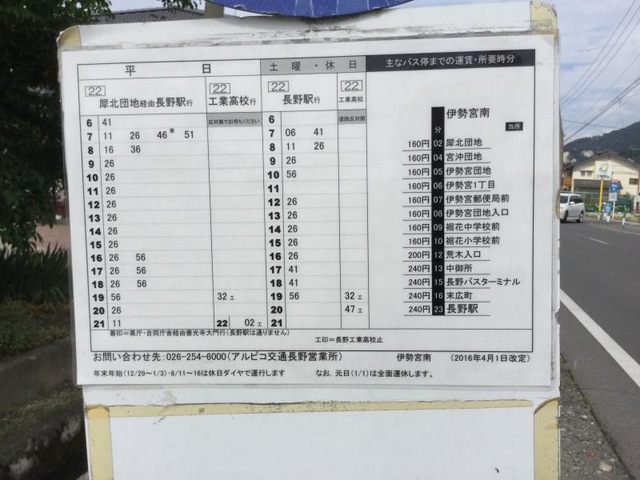 平日 土曜・休日 主なバス停までの運賃・所要時分
22 犀北団地経由長野駅行 22 工業高校行 22 長野駅行 22 工業高校
反対側でお待ちください 道路反対側
6 41 6
7 11 26 46善 51 7 06 41
8 16 36 8 11 26
9 26 9 26
10 26 10 56
11 26 11
12 26 12 26
13 26 13 26
14 26 14 26
15 26 15 26
16 26 56 16 26
17 26 56 17 41
18 26 56 18 41
19 56 32工 19 56 32工
20 26 20 47工
21 11 22 02工 21
善印=県庁・合同庁舎経由善光寺大門行(長野駅は通りません)
工印=長野工業高校止
分 伊勢宮南 当所
160円 02 犀北団地
160円 04 宮沖団地
160円 05 伊勢宮団地
160円 06 伊勢宮1丁目
160円 07 伊勢宮郵便局前
160円 08 伊勢宮団地入口
160円 09 裾花中学校前
160円 10 裾花小学校前
200円 12 荒木入口
240円 13 中御所
240円 15 長野バスターミナル
240円 16 末広町
240円 23 長野駅
お問い合わせ先:026-254-6000(アルピコ交通長野営業所) 伊勢宮南 (2016年4月1日改定)
年末年始(12/29~1/3)・8/11~16は休日ダイヤで運行します なお、元日(1/1)は全面運休します。